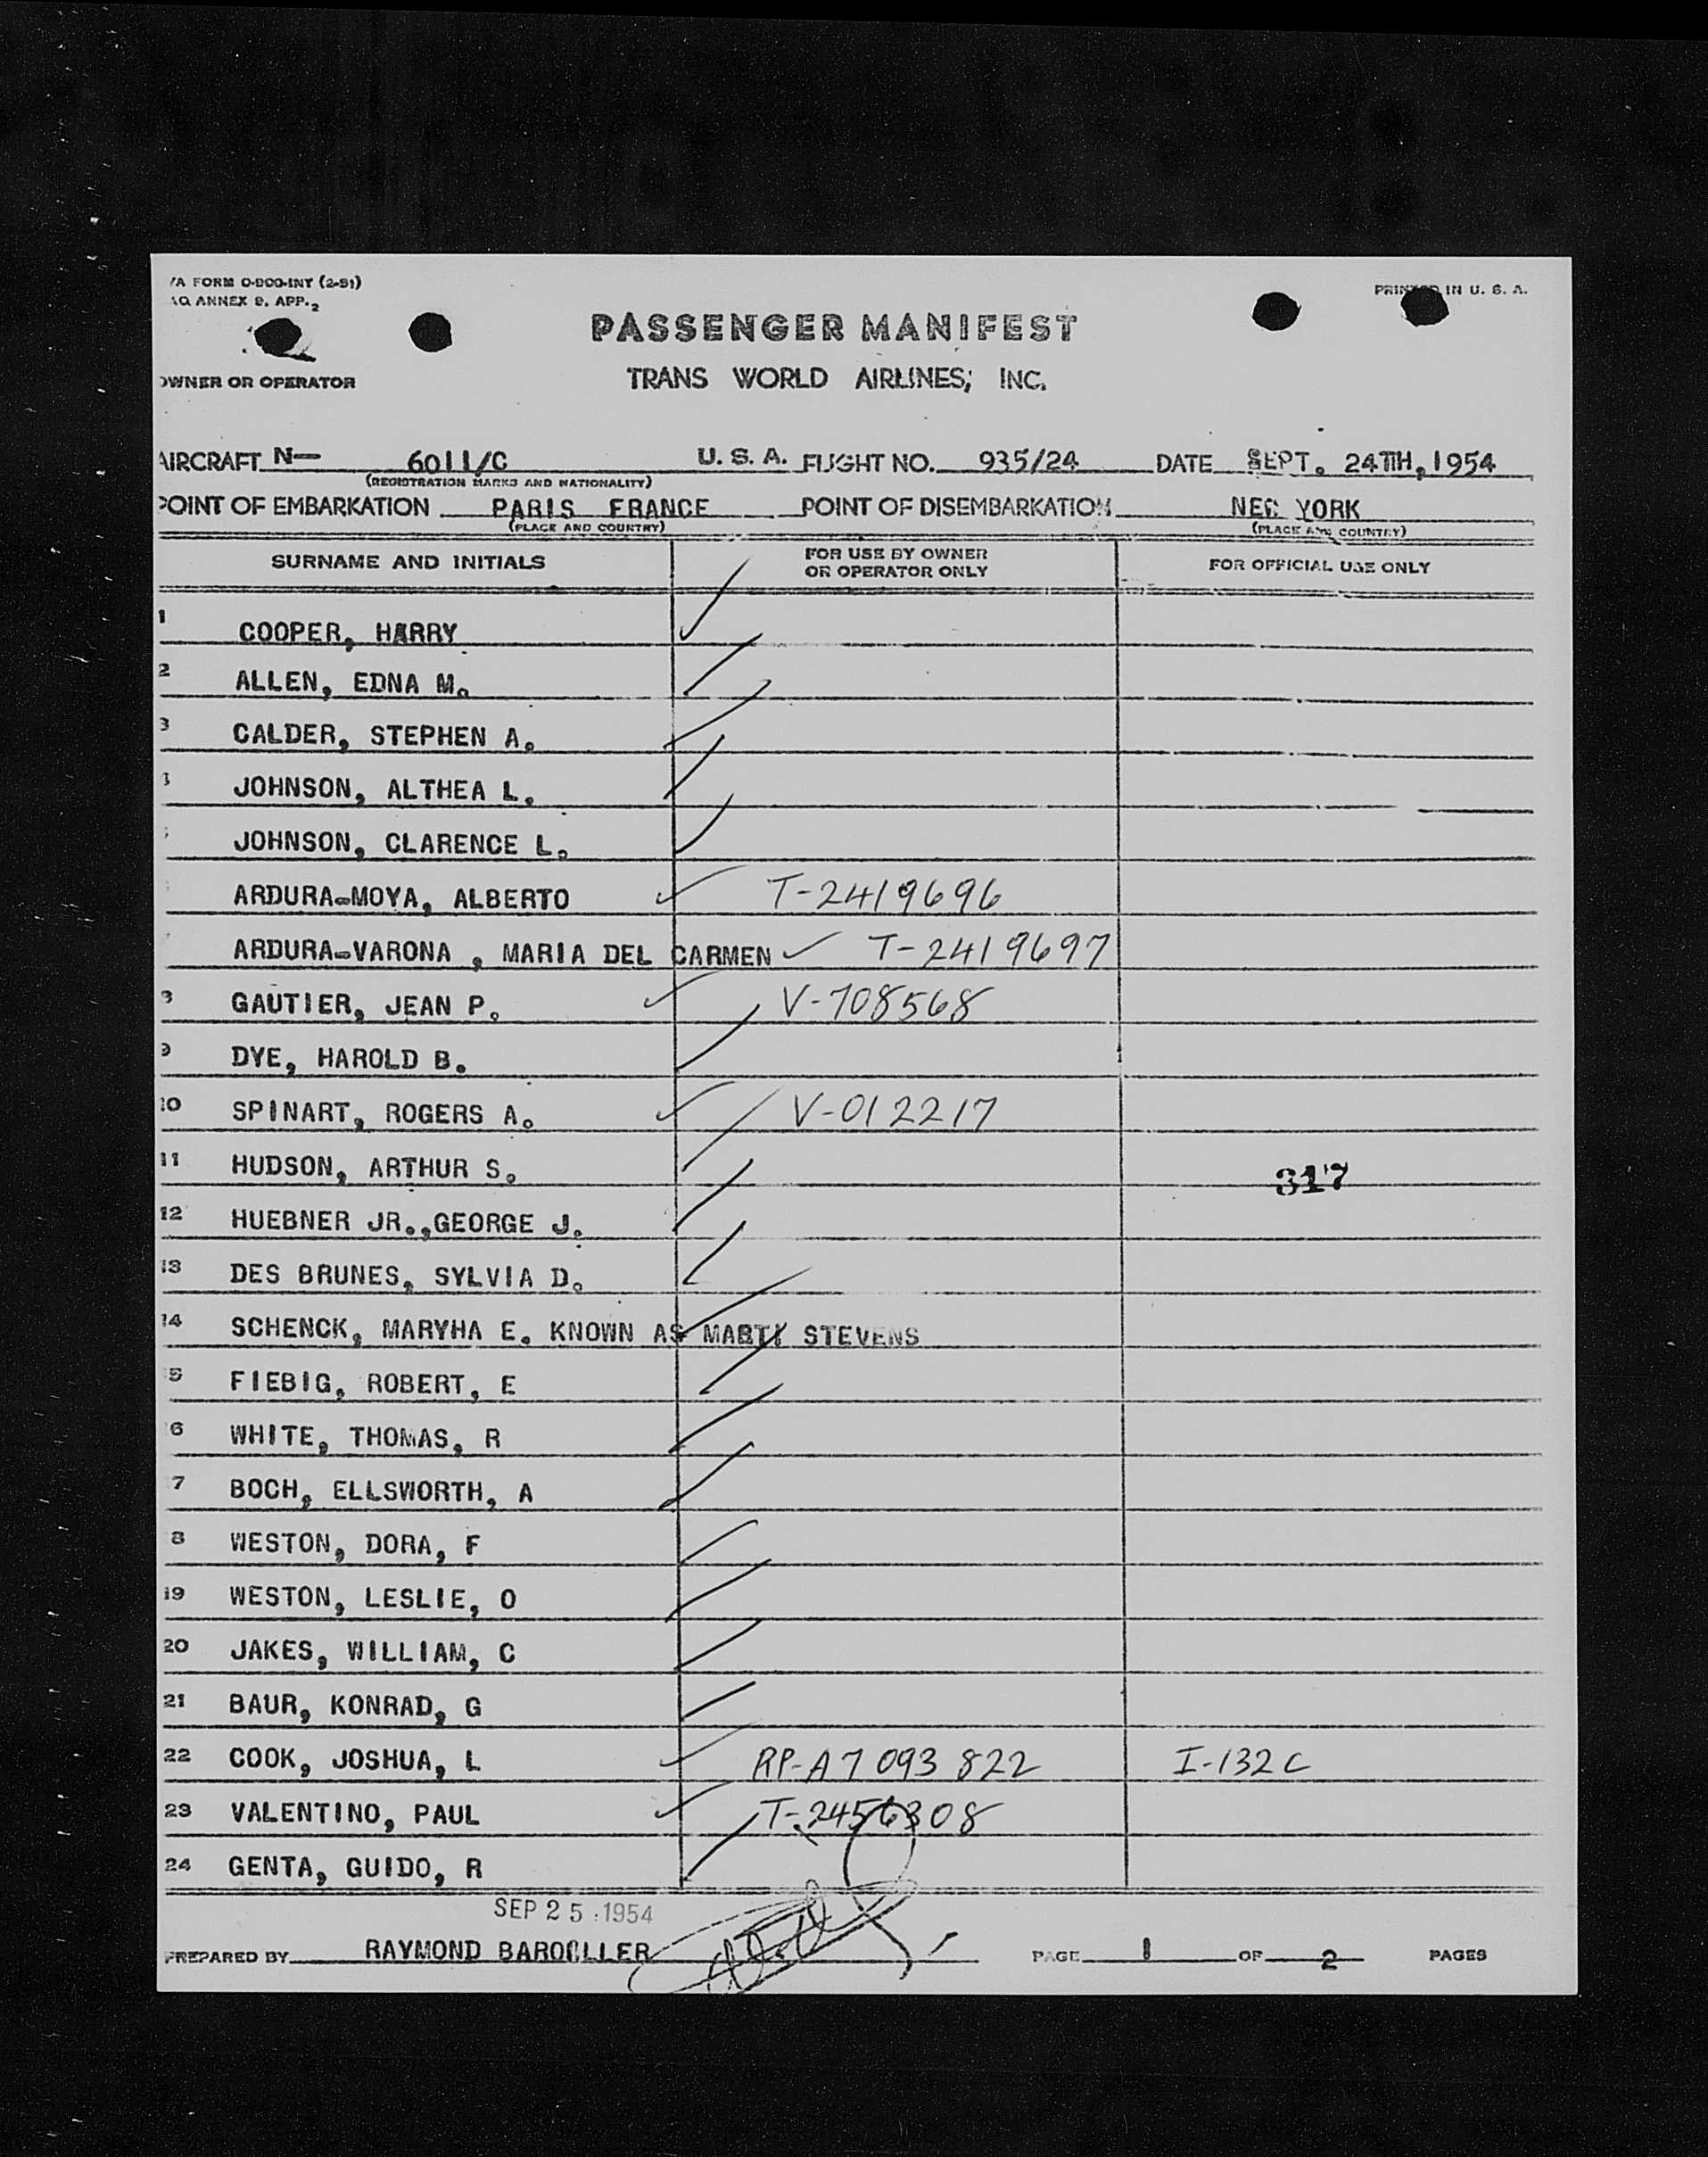 /A FORM O-800-INT (2-51)
AO ANNEX 9, APP. 2
PRINTED IN U. S. A.
PASSENGER MANIFEST
OWNER OR OPERATOR TRANS WORLD AIRLINES, INC.
AIRCRAFT N— 6011/C U. S. A. FLIGHT NO. 935/24 DATE SEPT. 24TH, 1954
(REGISTRATION MARKS AND NATIONALITY)
POINT OF EMBARKATION PARIS FRANCE POINT OF DISEMBARKATION NEW YORK
(PLACE AND COUNTRY) (PLACE AND COUNTRY)
SURNAME AND INITIALS FOR USE BY OWNER OR OPERATOR ONLY FOR OFFICIAL USE ONLY
1 COOPER, HARRY
2 ALLEN, EDNA M.
3 CALDER, STEPHEN A.
JOHNSON, ALTHEA L.
JOHNSON, CLARENCE L.
ARDURA-MOYA, ALBERTO T-2419696
ARDURA-VARONA , MARIA DEL CARMEN T-2419697
8 GAUTIER, JEAN P. V-708568
9 DYE, HAROLD B.
10 SPINART, ROGERS A. V-012217
11 HUDSON, ARTHUR S. 317
12 HUEBNER JR.,GEORGE J.
13 DES BRUNES, SYLVIA D.
14 SCHENCK, MARYHA E. KNOWN AS MARTI STEVENS
5 FIEBIG, ROBERT, E
6 WHITE, THOMAS, R
7 BOCH, ELLSWORTH, A
8 WESTON, DORA, F
19 WESTON, LESLIE, O
20 JAKES, WILLIAM, C
21 BAUR, KONRAD, G
22 COOK, JOSHUA, L RP-A7 093 822 I-132 C
23 VALENTINO, PAUL T-2456308
24 GENTA, GUIDO, R
SEP 25 1954
PREPARED BY RAYMOND PAGE 1 OF 2 PAGES